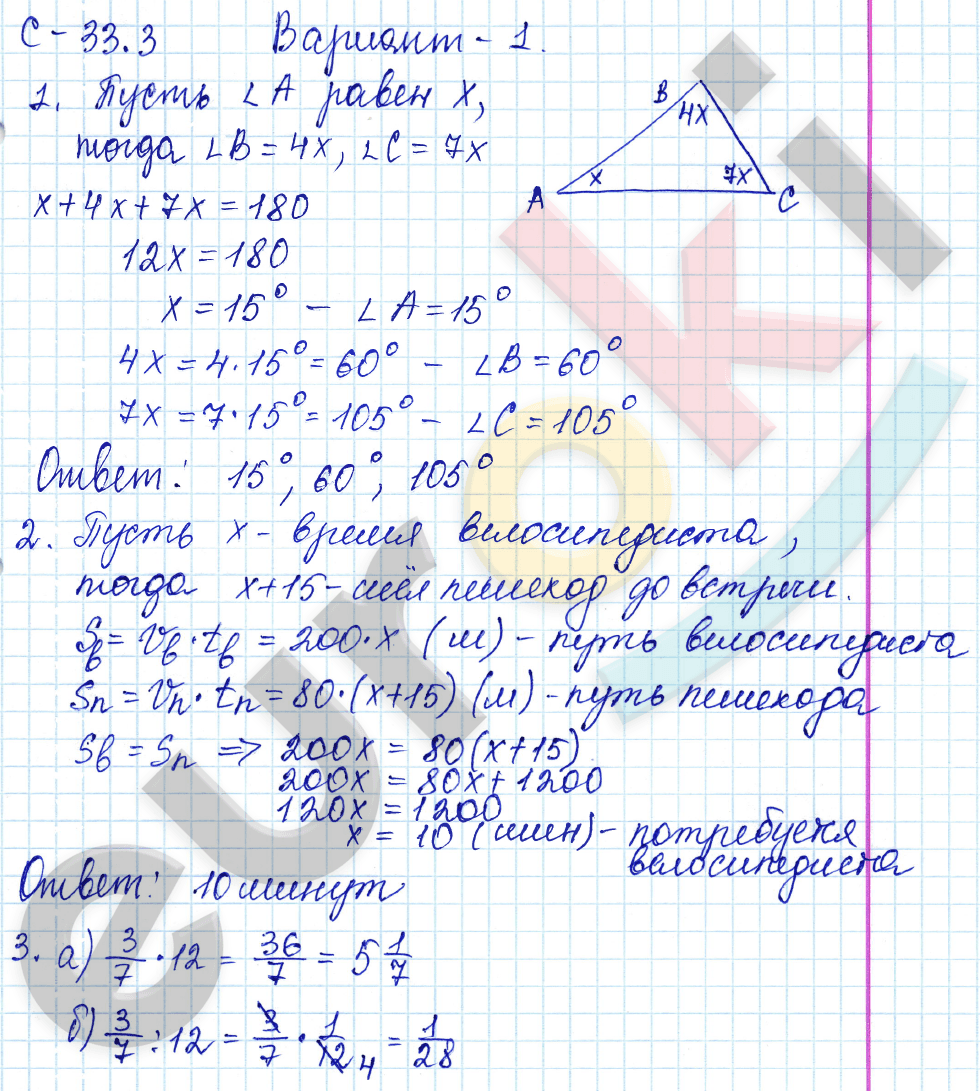 С-33.3 Вариант-1.
1. Пусть ∠A равен x,
тогда ∠B = 4x, ∠C = 7x
B 4x
A x 7x C
x+4x+7x=180
12x=180
x=15° – ∠A=15°
4x=4·15°=60° – ∠B=60°
7x=7·15°=105° – ∠C=105°
Ответ: 15°, 60°, 105°
2. Пусть x - время велосипедиста,
тогда x+15 - шёл пешеход до встречи.
Sв = Vв·tв = 200·x (м) - путь велосипедиста
Sп = Vп·tп = 80·(x+15) (м) - путь пешехода
Sв = Sп => 200x = 80(x+15)
200x = 80x+1200
120x = 1200
x = 10 (мин) - потребуется
велосипедиста
Ответ: 10 минут
3. а) 3/7 · 12 = 36/7 = 5 1/7
б) 3/7 : 12 = 3/7 · 1/12 4 = 1/28
euroki